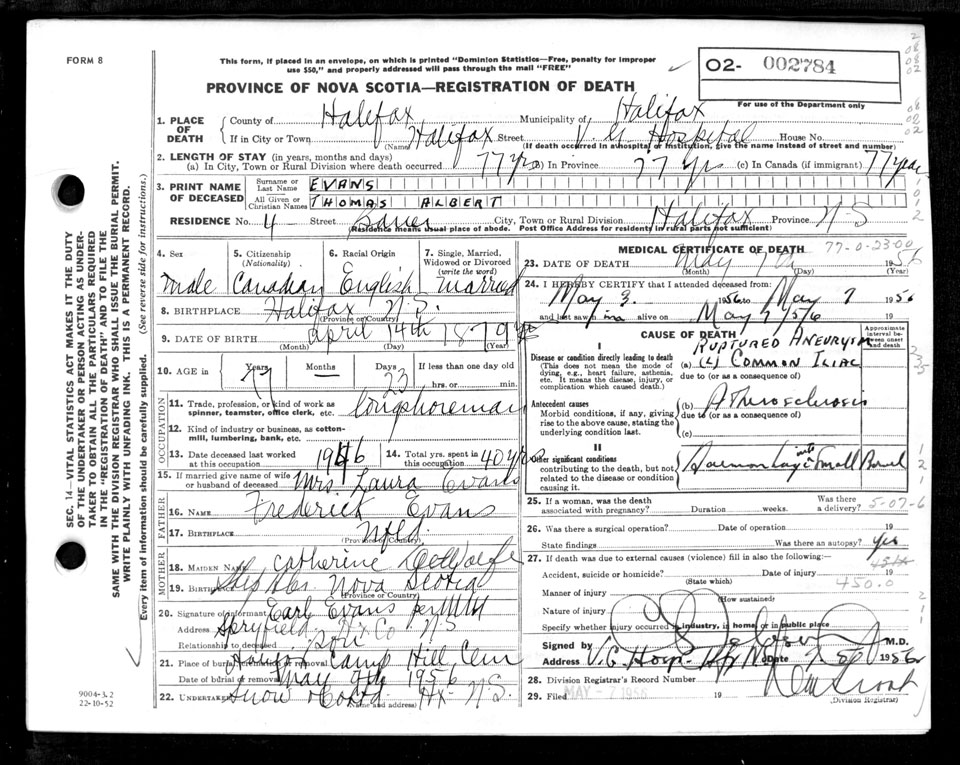 FORM 8
This form, if placed in an envelope, on which is printed "Dominion Statistics—Free, penalty for improper
use $50," and properly addressed will pass through the mail "FREE"
O2- 002784
PROVINCE OF NOVA SCOTIA—REGISTRATION OF DEATH
For use of the Department only
1. PLACE OF DEATH
County of Halifax Municipality of Halifax
If in City or Town Halifax Street V. G. Hospital House No.
(Name) (If death occurred in a hospital or institution, give the name instead of street and number)
2. LENGTH OF STAY (in years, months and days)
(a) In City, Town or Rural Division where death occurred 77 yrs (b) In Province 77 yrs (c) In Canada (if immigrant) 77 years
3. PRINT NAME OF DECEASED
Surname or Last Name EVANS
All Given or Christian Names THOMAS ALBERT
RESIDENCE No. 4 Street City, Town or Rural Division Halifax Province N-S
(Residence means usual place of abode. Post Office Address for residents in rural parts not sufficient)
4. Sex 5. Citizenship (Nationality) 6. Racial Origin 7. Single, Married, Widowed or Divorced (write the word)
Male Canadian English Married
8. BIRTHPLACE Halifax N.S.
(Province or Country)
9. DATE OF BIRTH April 14th 1879
(Month) (Day) (Year)
10. AGE in Years Months Days If less than one day old
77 23 hrs. or min.
OCCUPATION
11. Trade, profession, or kind of work as spinner, teamster, office clerk, etc. Longshoreman
12. Kind of industry or business, as cotton-mill, lumbering, bank, etc.
13. Date deceased last worked at this occupation 1946 14. Total yrs. spent in this occupation 40 yrs
15. If married give name of wife or husband of deceased Mrs Laura Evans
FATHER
16. NAME Frederick Evans
17. BIRTHPLACE Nfld.
(Province or Country)
MOTHER
18. MAIDEN NAME Catherine
19. BIRTHPLACE Nova Scotia
(Province or Country)
20. Signature of informant Earl Evans per
Address Spryfield Hfx Co N S
Relationship to deceased Son
21. Place of burial, cremation or removal Camp Hill Cem
Date of burial or removal May 9th 1956
22. Undertaker Snow & Co Ltd Hx N.S.
(Name and address)
MEDICAL CERTIFICATE OF DEATH 77-0-23-00
23. DATE OF DEATH May 7th 1956
(Month) (Day) (Year)
24. I HEREBY CERTIFY that I attended deceased from:
May 3. 1956 to May 7 1956
and last saw him alive on May 7 1956 19
CAUSE OF DEATH
Approximate interval between onset and death
I
Disease or condition directly leading to death
(This does not mean the mode of dying, e.g., heart failure, asthenia, etc. It means the disease, injury, or complication which caused death.)
RUPTURED ANEURYSM
(a) (L) COMMON ILIAC
due to (or as a consequence of)
Antecedent causes
Morbid conditions, if any, giving rise to the above cause, stating the underlying condition last.
(b) Atherosclerosis
due to (or as a consequence of)
(c)
II
Other significant conditions
contributing to the death, but not related to the disease or condition causing it.
into Small Bowel
25. If a woman, was the death associated with pregnancy? Duration weeks. Was there a delivery? 5-07-6
26. Was there a surgical operation? Date of operation 19
State findings Was there an autopsy? Yes
27. If death was due to external causes (violence) fill in also the following:—
Accident, suicide or homicide? Date of injury 19
(State which) 450.0
Manner of injury
(How sustained)
Nature of injury
Specify whether injury occurred in industry, in home, or in public place
Signed by M.D.
Address V. G. Hosp. Hfx N.S. Date 1956
28. Division Registrar's Record Number
29. Filed MAY - 7 1956 19
(Division Registrar)
SEC. 14—VITAL STATISTICS ACT MAKES IT THE DUTY
OF THE UNDERTAKER OR PERSON ACTING AS UNDER-
TAKER TO OBTAIN ALL THE PARTICULARS REQUIRED
IN THE "REGISTRATION OF DEATH" AND TO FILE THE
SAME WITH THE DIVISION REGISTRAR WHO SHALL ISSUE THE BURIAL PERMIT.
WRITE PLAINLY WITH UNFADING INK. THIS IS A PERMANENT RECORD.
Every item of information should be carefully supplied. (See reverse side for instructions.)
9004-3.2
22-10-52